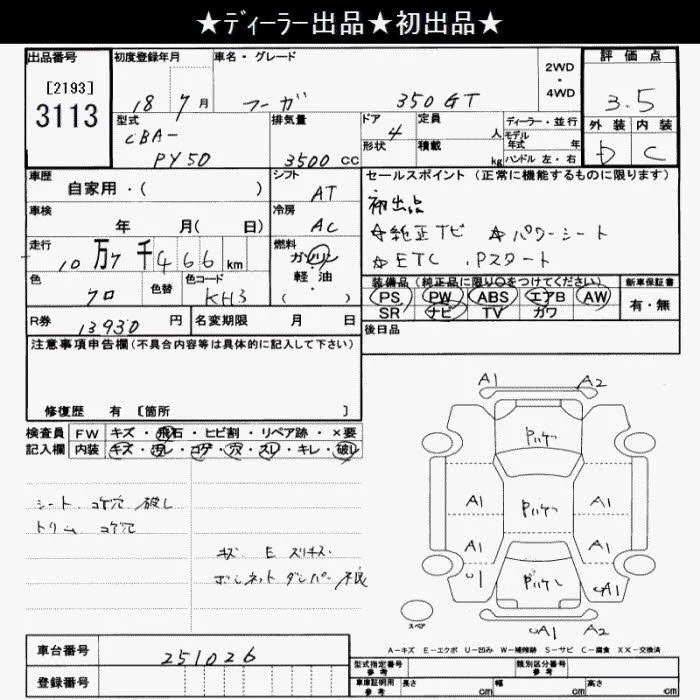 ★ディーラー出品★初出品★
出品番号 初度登録年月 車名・グレード 2WD・4WD 評価点
[2193]
3113
18 7月 フーガ 350GT 3.5
型式 排気量 ドア 定員 ディーラー・並行 外装 内装
CBA-
PY50 3500 CC 4 人 モデル年式 年 D C
形状 積載 kg ハンドル 左・右
車歴 シフト セールスポイント (正常に機能するものに限ります)
自家用・( ) AT
車検 冷房 初出品
年 月( 日) AC ☆純正TV ☆パワーシート
走行 燃料 ☆ETC .Pスタート
10万7千466km ガソリン
軽・油
・( )
色 色替 色コード 装備品 (純正品に限り○をつけてください) 新車保証書
クロ KH3 PS PW ABS エアB AW 有・無
SR ナビ TV ガワ
R券 13930 円 名変期限 月 日 後日品
注意事項申告欄(不具合内容等は具体的に記入して下さい)
修復歴 有 [箇所 ]
検査員 FW キズ・飛石・ヒビ割・リペア跡・×要
記入欄 内装 キズ・汚レ・コゲ・穴・スレ・キレ・破レ
シート コゲ穴 破レ
トリム コゲ穴
キズ E スリキズ
ボンネットダンパー不良
A1 A2
A1 A1
A1 A1
A1
A1 A2
スペア
A-キズ E-エクボ U-凹み W-補修跡 S-サビ C-腐食 XX-交換済
車台番号 251026
登録番号
型式指定番号 参考 類別区分番号 参考
車庫証明用 参考 長さ cm 幅 cm 高さ cm